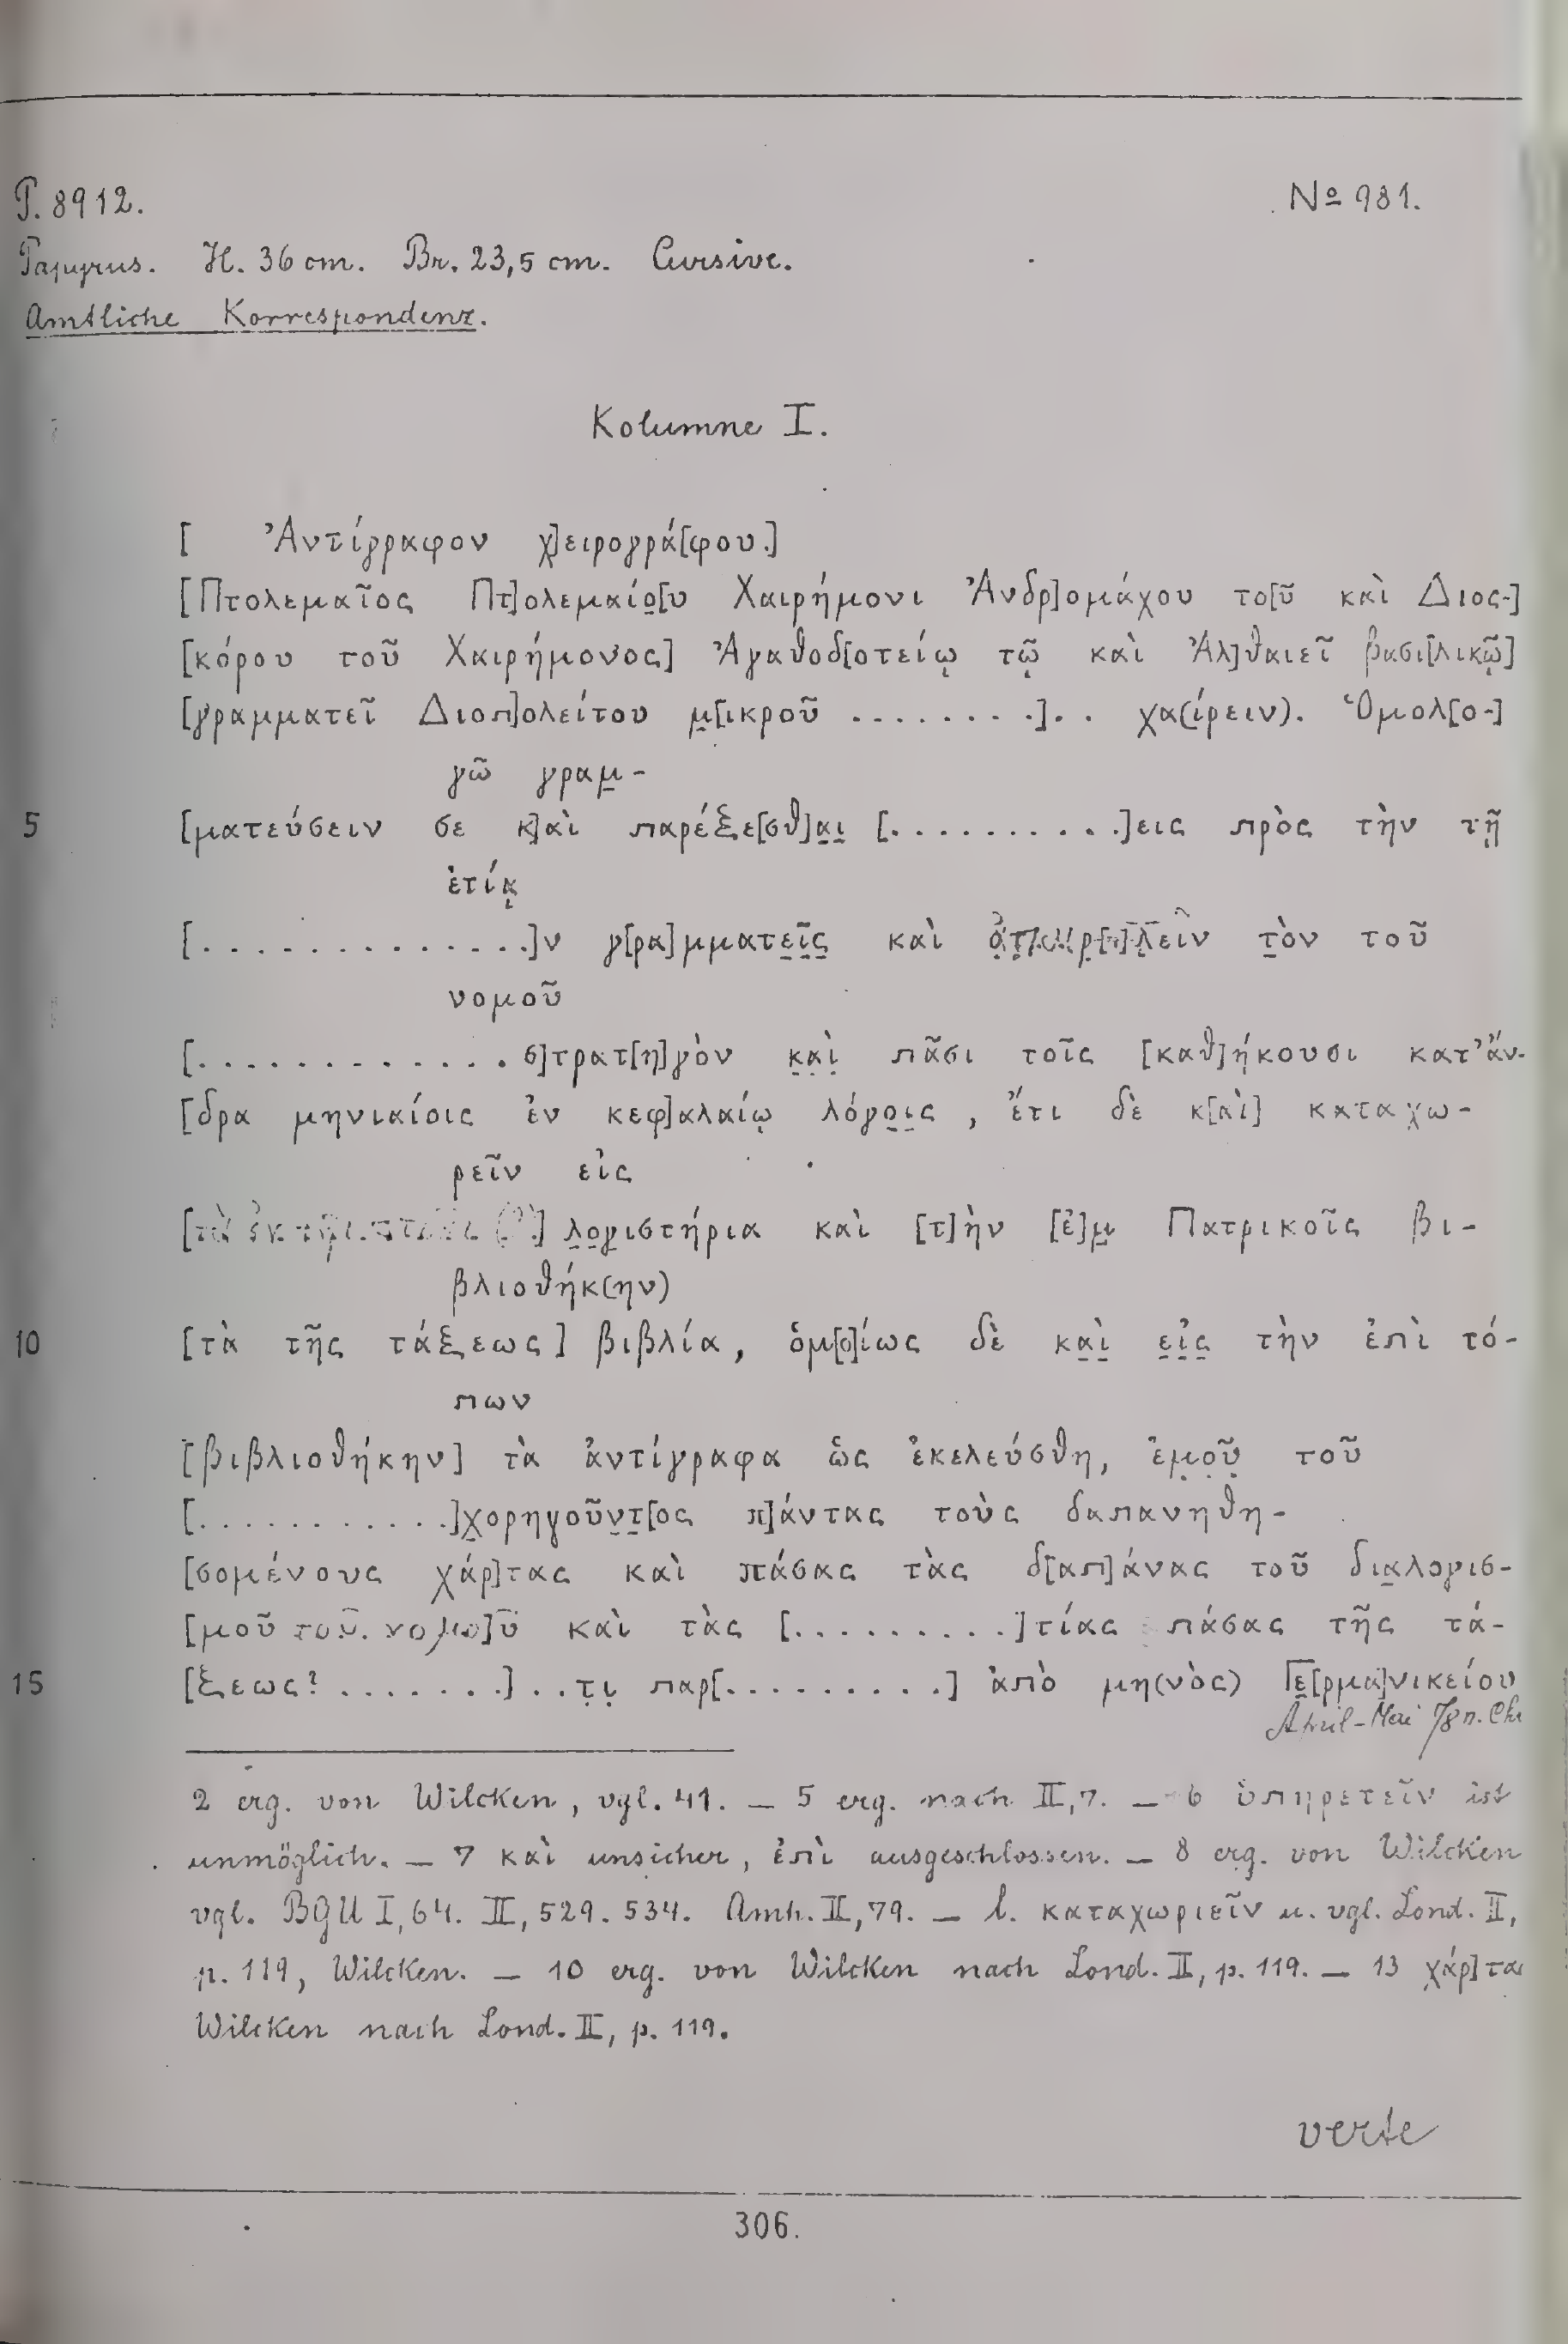 P. 8912. Nº 981.
Papyrus. H. 36 cm. Br. 23,5 cm. Cursive.
Amtliche Korrespondenz.
Kolumne I.
[ Ἀντίγραφον χ]ειρογρά[φου.]
[Πτολεμαῖος Πτ]ολεμαίο̣[υ Χαιρήμονι Ἀνδρ]ομάχου το[ῦ καὶ Διοσ-]
[κόρου τοῦ Χαιρήμονος] Ἀγαθοδ[οτείῳ τῷ καὶ Ἀλ]θαιεῖ βασι[λικῷ]
[γραμματεῖ Διοπ]ολείτου μ̣[ικροῦ ........]. . χα(ίρειν). Ὁμολ[ο-]
γῶ γραμ̣-
5 [ματεύσειν σε κ]αὶ παρέξε[σθ]α̣ι̣ [..........]εις πρὸς τὴν τῇ
ἐτίᾳ
[..............]ν γ[ρα]μματε̣ῖ̣ς̣ καὶ τ̣ὸν τοῦ
νομοῦ
[............. σ]τρατ[η]γὸν κ̣α̣ὶ̣ πᾶσι τοῖς [καθ]ήκουσι κατ’ἄν-
[δρα μηνιαίοις ἐν κεφ]αλαίῳ λόγο̣ι̣ς , ἔτι δὲ κ[αὶ] καταχω-
ρεῖν εἰς
λ̣ο̣γ̣ιστήρια καὶ [τ]ὴν [ἐ]μ̣ Πατρικοῖς βι-
βλιοθήκ(ην)
10 [τὰ τῆς τάξεως] βιβλία, ὁμ[ο]ίως δὲ κα̣ὶ̣ ε̣ἰ̣ς̣ τὴν ἐπὶ τό-
πων
[βιβλιοθήκην] τὰ ἀντίγραφα ὡς ἐκελεύσθη, ἐμ̣ο̣ῦ̣ τοῦ
[...........]χ̣ορηγοῦν̣τ̣[ος π]άντας τοὺς δαπανηθη-
[σομένους χάρ]τας καὶ πάσας τὰς δ[απ]άνας τοῦ δια̣λογισ-
[μοῦ τοῦ νομο]ῦ καὶ τὰς [.........]τίας πάσας τῆς τά-
15 [ξεως? .......] . .τ̣ι̣ παρ[.........] ἀπὸ μη(νὸς) Γε̣[ρμα]νικείου
April-Mai 78 n. Chr
2 erg. von Wilcken, vgl. 41. — 5 erg. nach II,7. — 6 ὑπηρετεῖν ist
unmöglich. — 7 καὶ unsicher, ἐπὶ ausgeschlossen. — 8 erg. von Wilcken
vgl. BGU I, 64. II, 529. 534. Amh. II, 79. — l. καταχωριεῖν u. vgl. Lond. II,
p. 119, Wilcken. — 10 erg. von Wilcken nach Lond. II, p. 119. — 13 χάρ]τας
Wilcken nach Lond. II, p. 119.
verte
306.